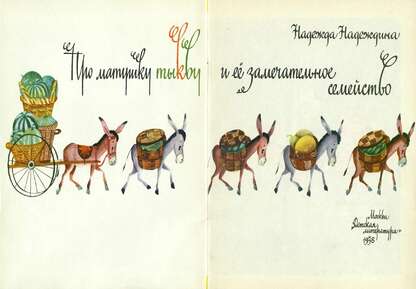 Надежда Надеждина
Про матушку тыкву и её замечательное
семейство
Москва
„Детская
литература“